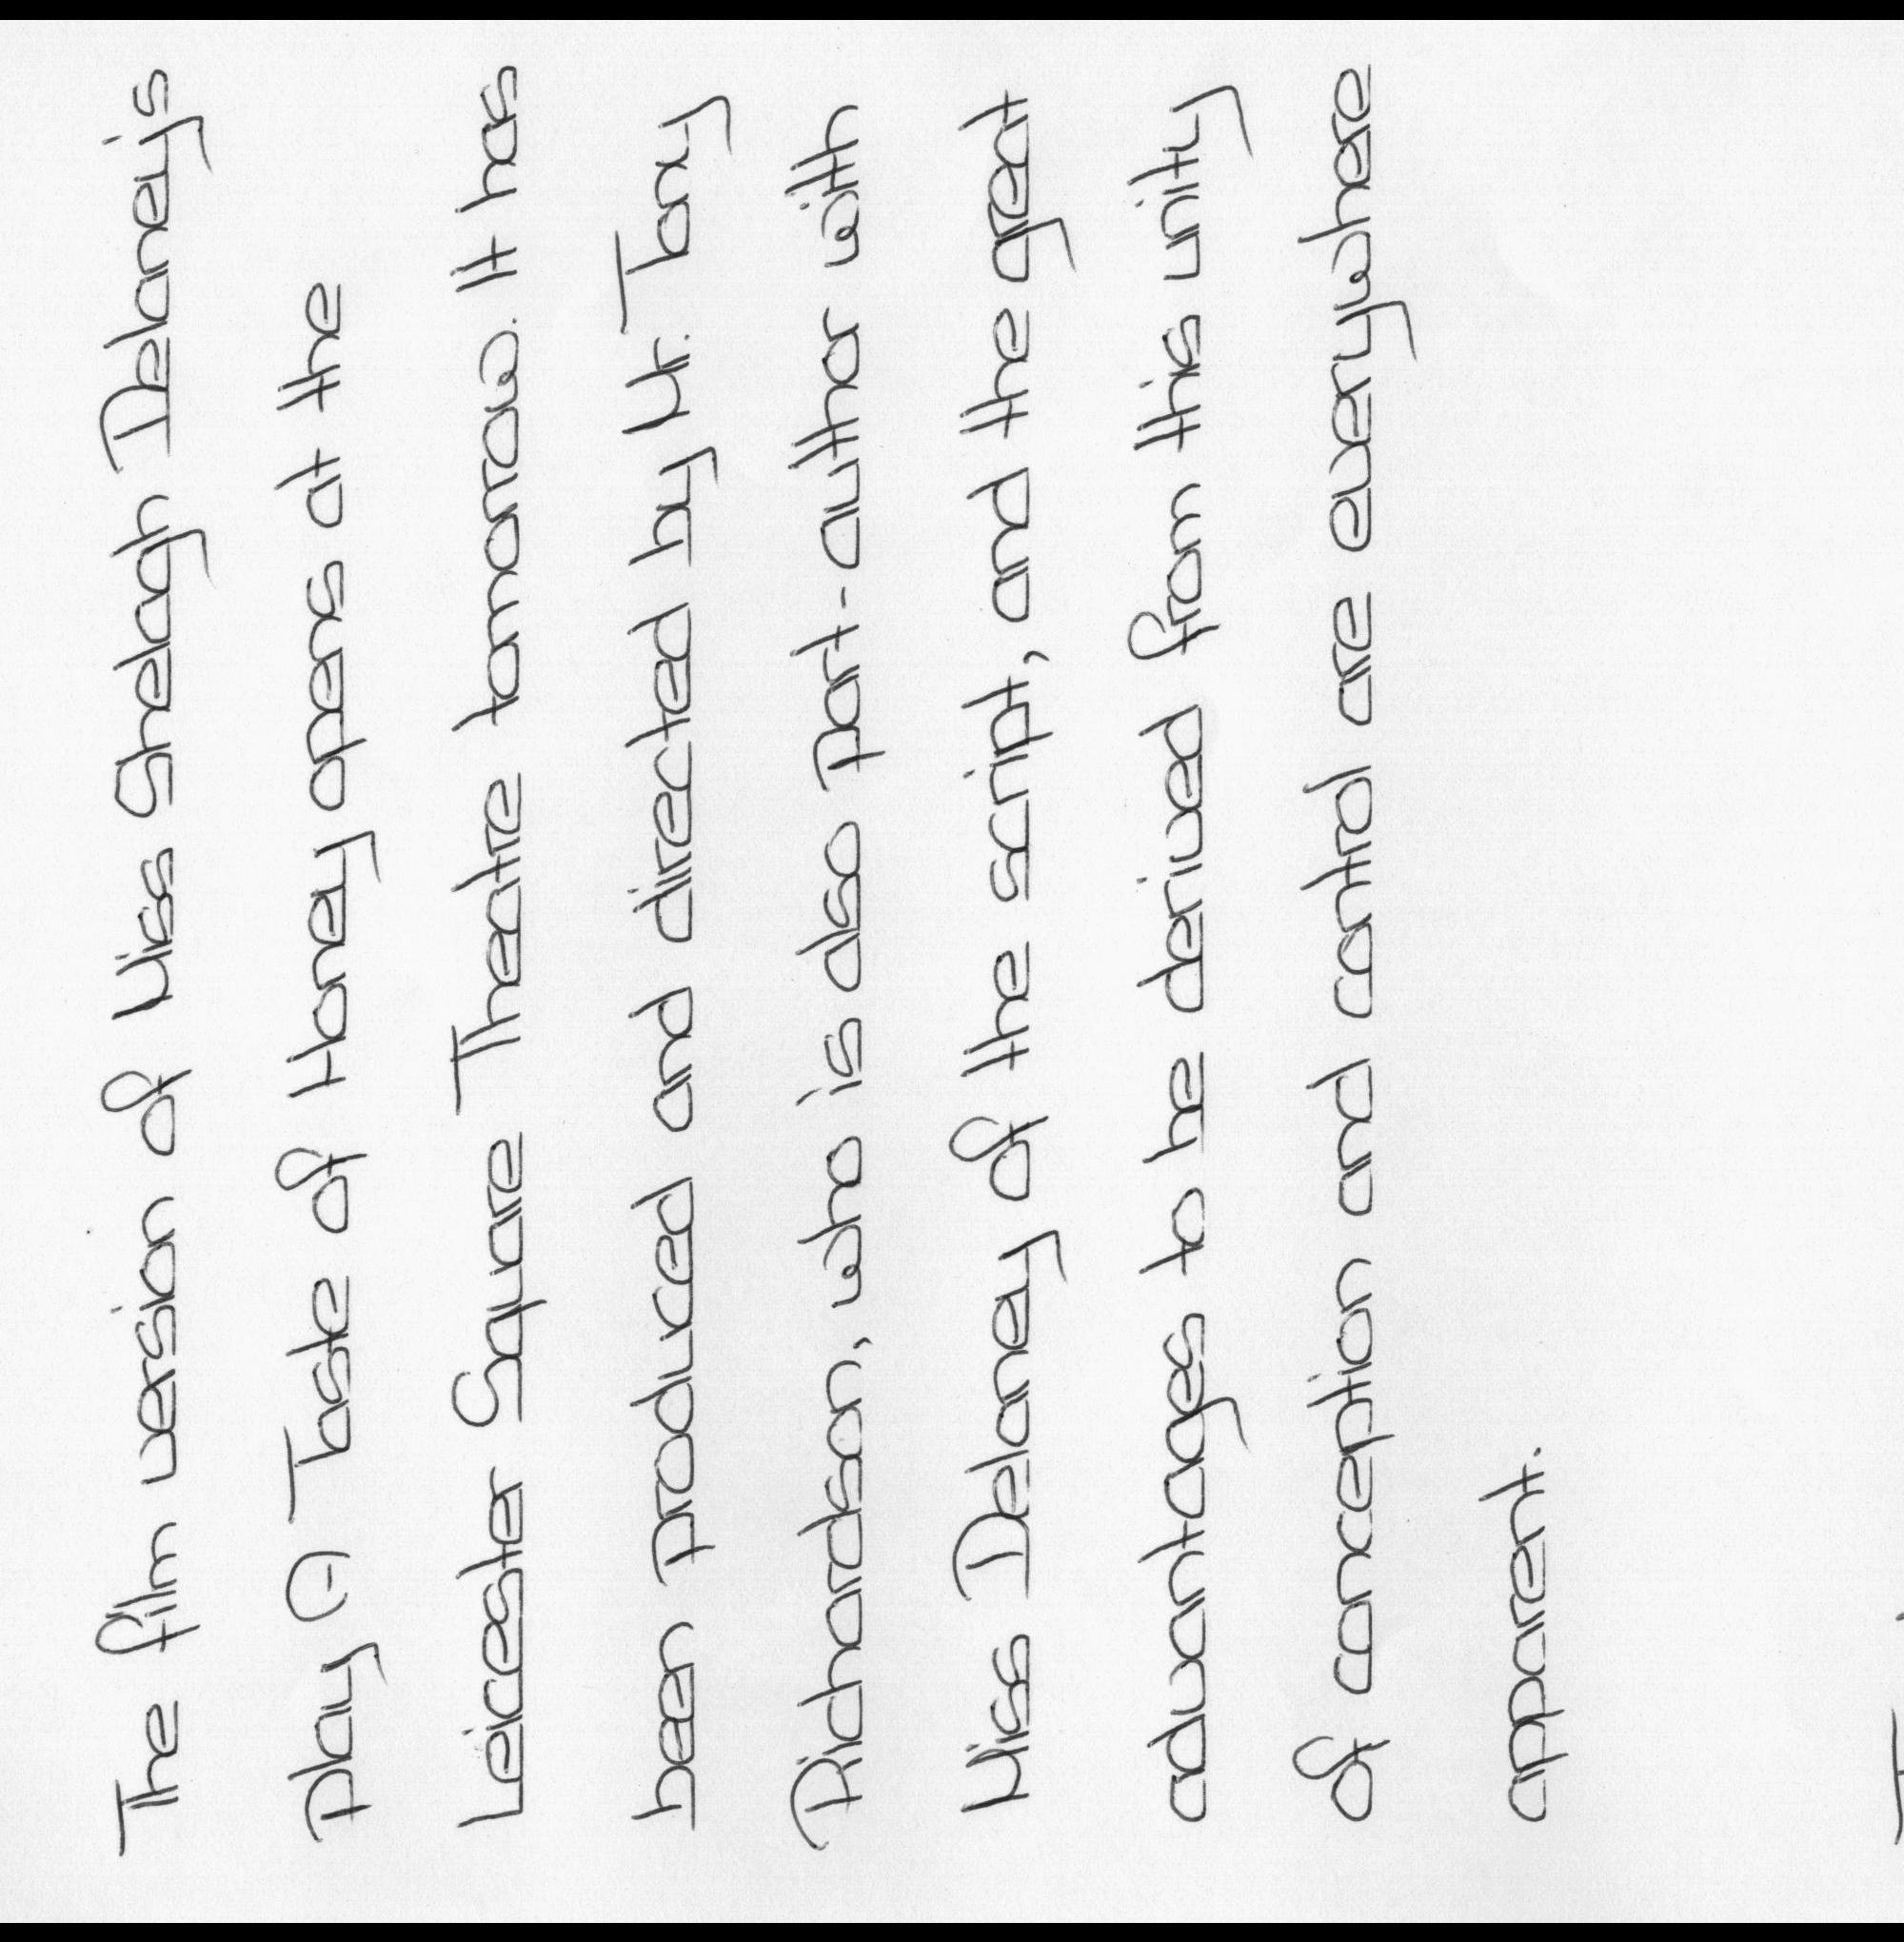 The film version of Miss Shelagh Delaney's
play A Taste of Honey opens at the
Leicester Square Theatre tomorrow. It has
been produced and directed by Mr. Tony
Richardson, who is also part-author with
Miss Delaney of the script, and the great
advantages to be derived from this unity
of conception and control are everywhere
apparent.